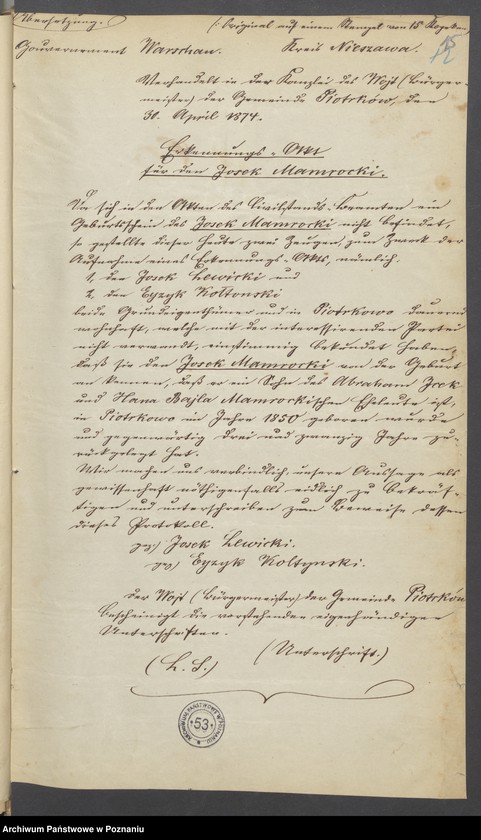 Übersetzung.
/: Original auf einem Stempel von 15 Kopeken
15
Gouvernement Warschau. Kreis Nieszawa.
Verhandelt in der Kanzlei des Wojt (Bürger-
meister) der Gemeinde Piotrków, den
30. April 1874.
Erkennungs-Akt
für den Josek Mamrocki.
Da sich in den Akten des Civilstands-Beamten ein
Geburtsschein des Josek Mamrocki nicht befindet,
so gestellte dieser heute zwei Zeugen, zum Zweck der
Aufnahme eines Erkennungs-Akts, nämlich:
1, den Josek Lewicki und
2, den Eyzyk Koltonski
beide Grundeigenthümer und in Piotrkowo dauernd
wohnhaft, welche mit der interessirenden Partei
nicht verwandt, einstimmig bekundet haben,
daß sie den Josek Mamrocki von der Geburt
an kennen, daß er ein Sohn des Abraham Icek
und Hana Bajla Mamrockischen Eheleute ist,
in Piotrkowo im Jahre 1850 geboren wurde
und gegenwärtig drei und zwanzig Jahre zu-
rückgelegt hat.
Wir machen uns verbindlich unsere Aussage als
gewissenhaft nöthigenfalls eidlich zu bekräf-
tigen und unterschreiben zum Beweise dessen
dieses Protokoll.
gez) Josek Lewicki.
gez) Eyzyk Koltynski.
Der Wojt (Bürgermeister) der Gemeinde Piotrków
bescheinigt die vorstehenden eigenhändigen
Unterschriften.
(L. S.) (Unterschrift.)
ARCHIWUM PAŃSTWOWE W POZNANIU
53
Archiwum Państwowe w Poznaniu